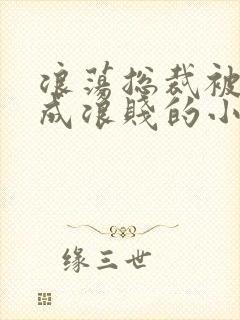 浪荡总裁被
成浪贱的小
缘三世